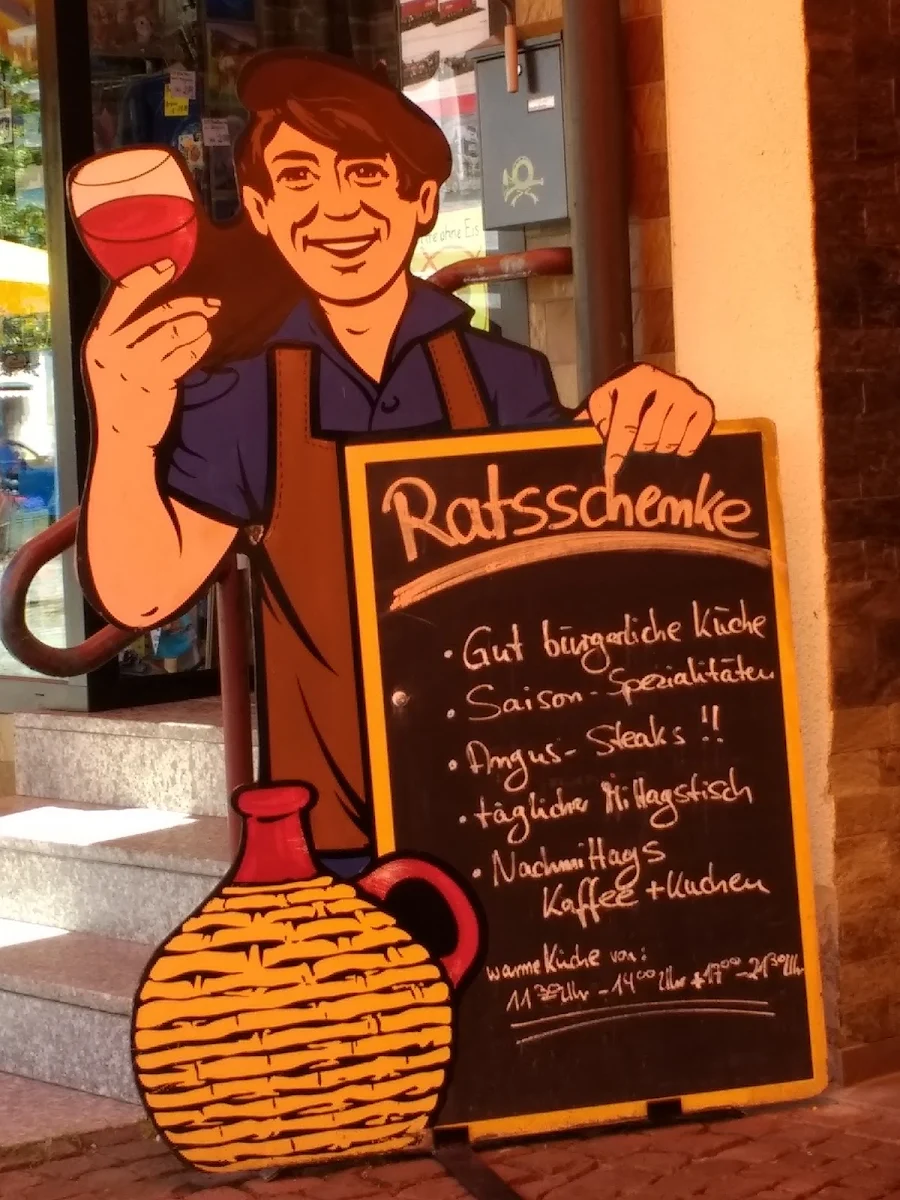 Ratsschenke
· Gut bürgerliche Küche
· Saison-Spezialitäten
· Angus-Steaks !!
· täglicher Mittagstisch
· Nachmittags
Kaffee + Kuchen
warme Küche von:
11³⁰ Uhr - 14⁰⁰ Uhr + 17⁰⁰ - 21³⁰ Uhr
ohne Eis